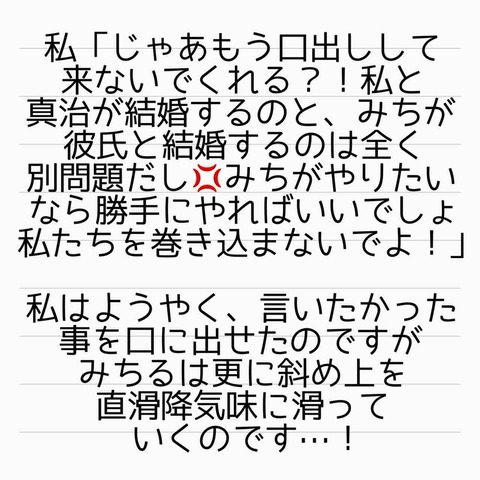 私「じゃあもう口出しして
来ないでくれる？！私と
真治が結婚するのと、みちが
彼氏と結婚するのは全く
別問題だし💢みちがやりたい
なら勝手にやればいいでしょ
私たちを巻き込まないでよ！」
私はようやく、言いたかった
事を口に出せたのですが
みちるは更に斜め上を
直滑降気味に滑って
いくのです…！